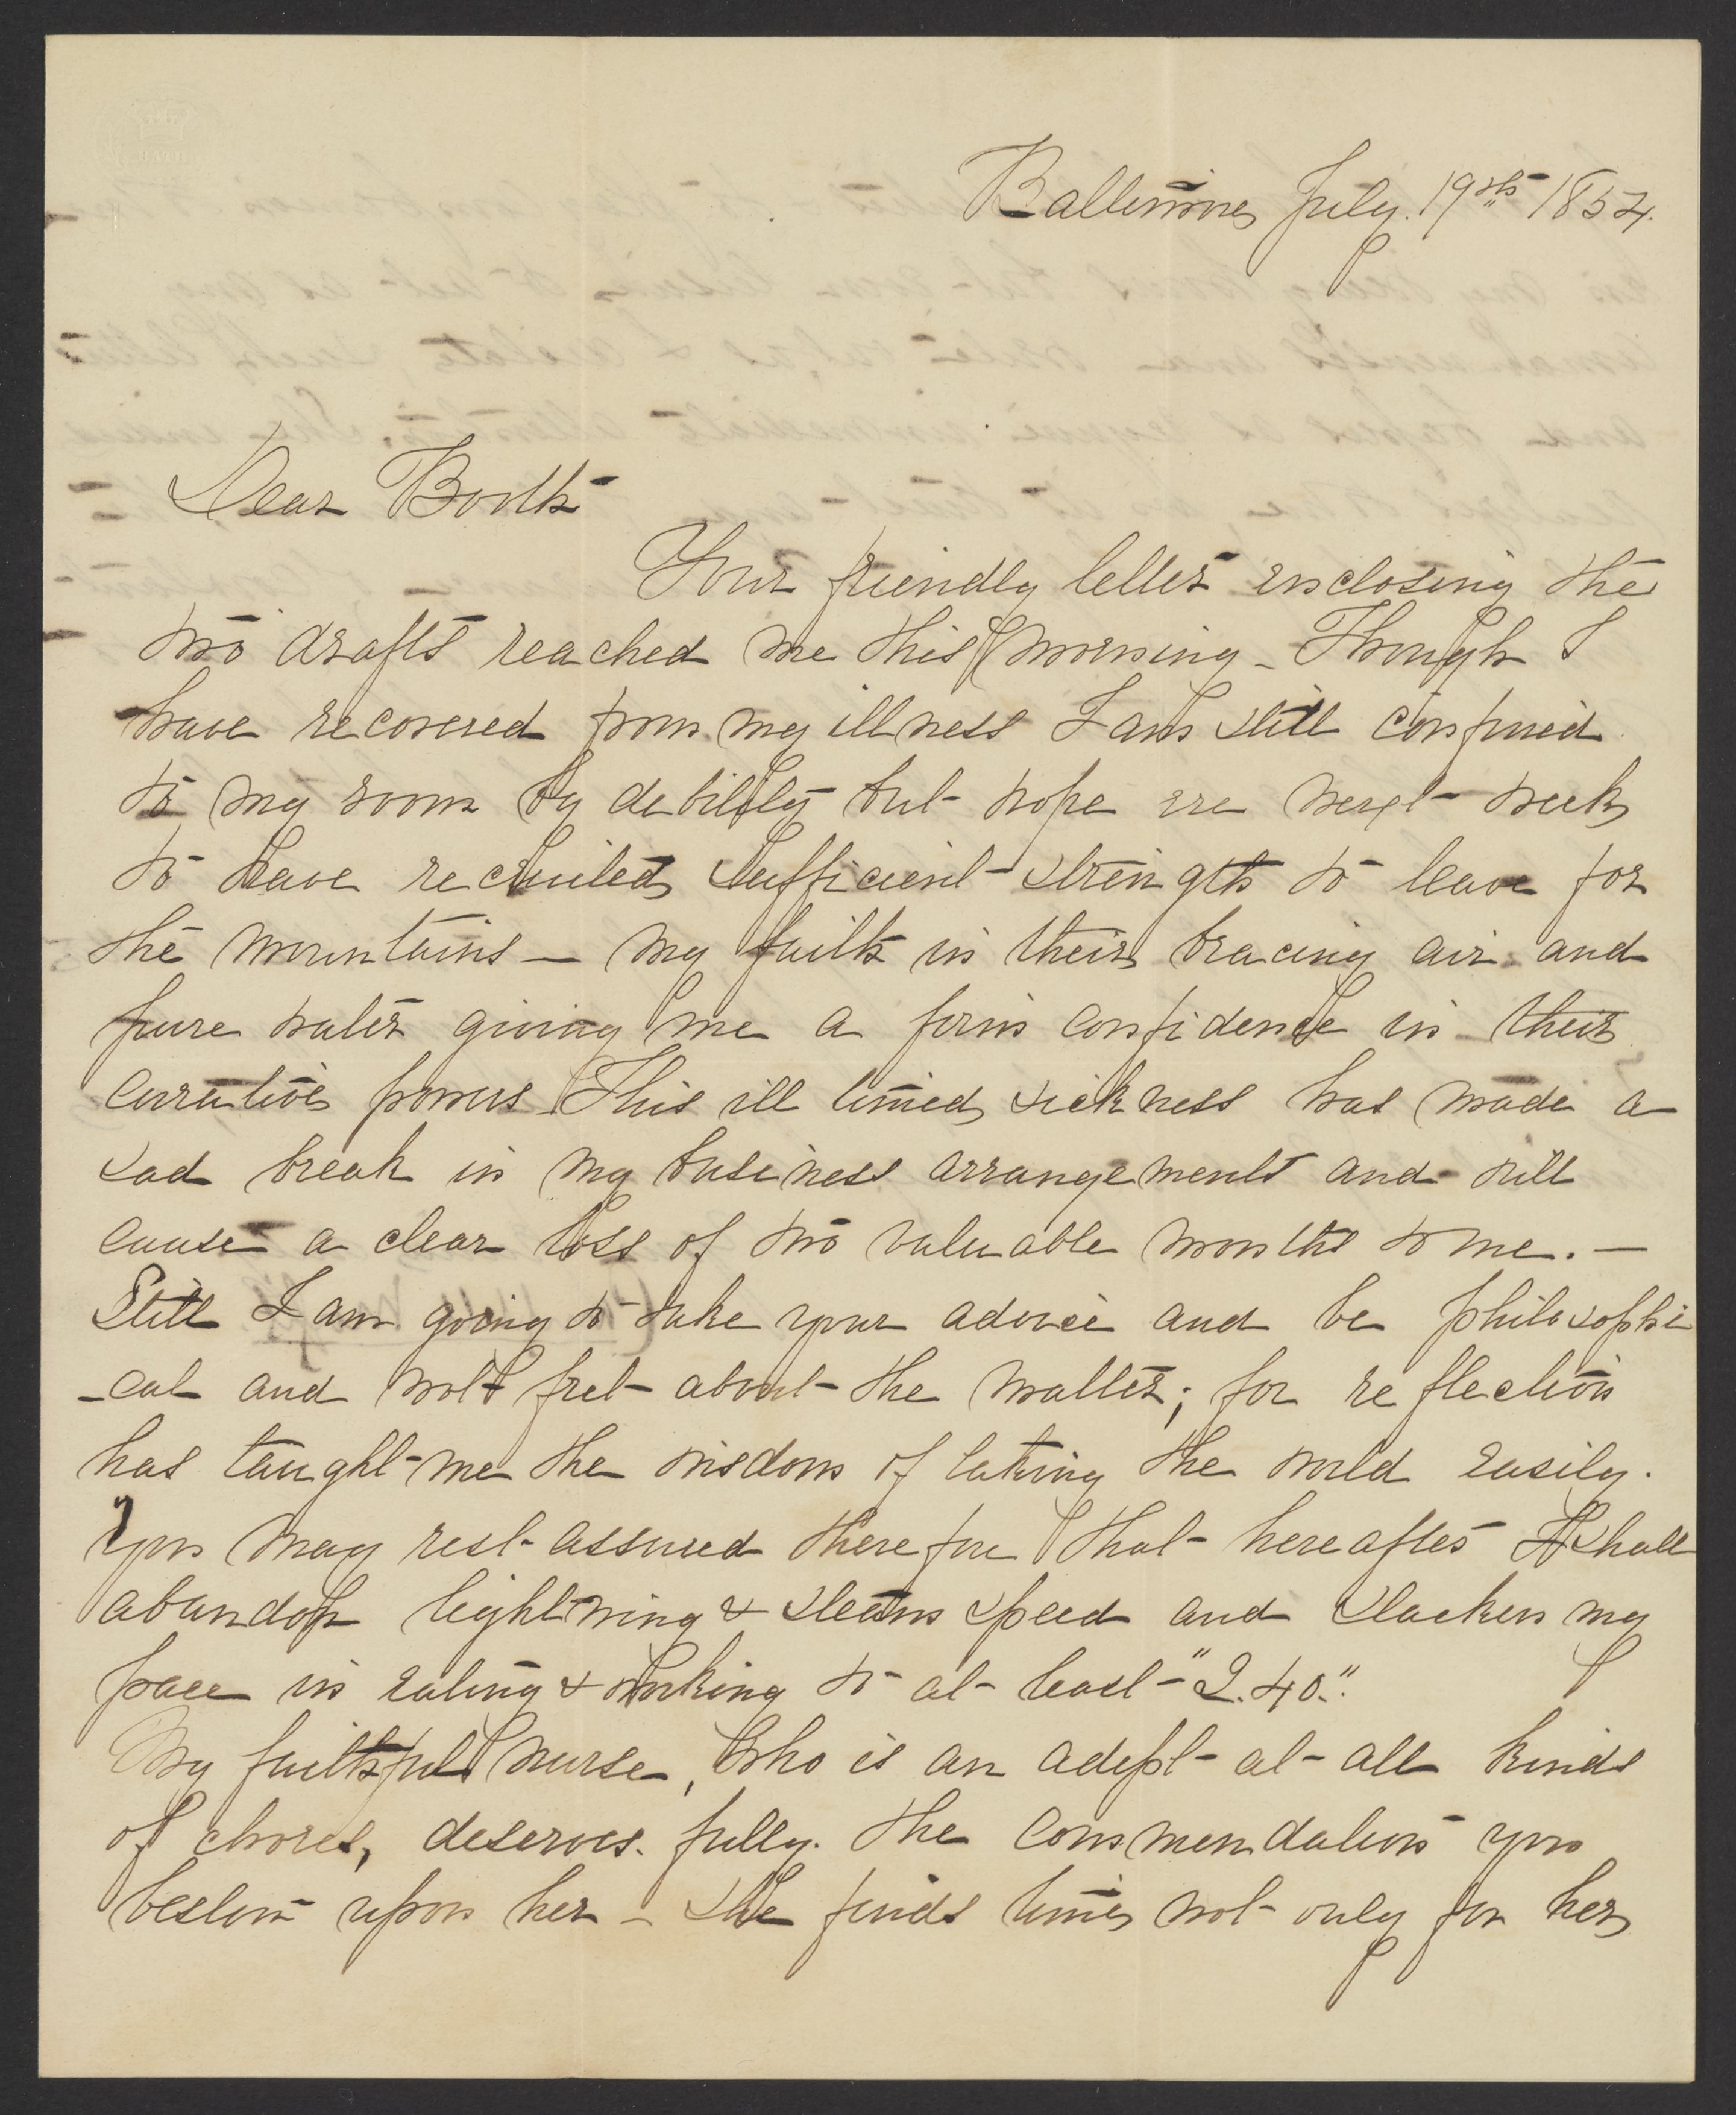 Baltimore July. 19th 1854.
Dear Booth
Your friendly letter enclosing the
two drafts reached me this morning – Though I
have recovered from my illness I am still confined
to my room by debility but hope ere next week
to have recruited sufficient strength to leave for
the mountains — my faith in their bracing air and
pure water giving me a firm confidence in their
curative powers – This ill timed sickness has made a
sad break in my business arrangements and will
cause a clear loss of two valuable months to me. —
Still I am going to take your advice and be philosophi
-cal and not fret about the matter; for reflection
has taught me the wisdom of taking the world easily.
You may rest assured therefore that hereafter I shall
abandon lightning & steam speed and slacken my
pace in eating & working to at least "2.40."
My faithful nurse, who is an adept at all kinds
of chores, deserves. fully. the commendation you
bestow upon her – She finds time not only for her